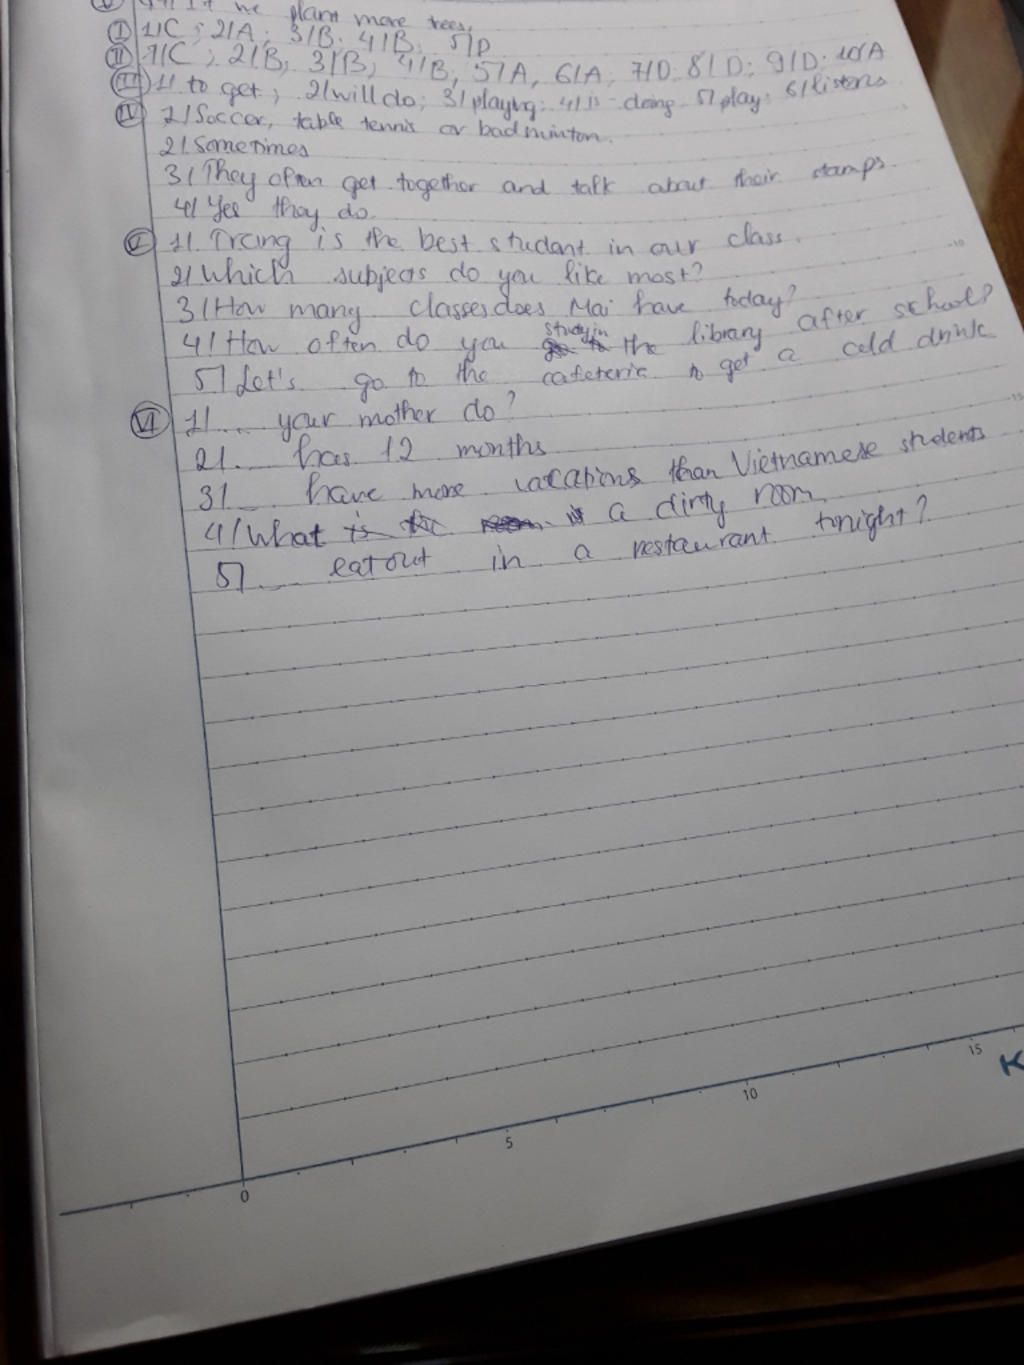 If we plant more trees,
I 1/C; 2/A; 3/B. 4/B, 5/D
II 1/C; 2/B; 3/B; 4/B, 5/A, 6/A; 7/D; 8/D; 9/D; 10/A
III 1/ to get; 2/ will do; 3/ playing; 4/ is doing 5/ play; 6/ listens
IV 1/ Soccer, table tennis or badminton.
2/ Sometimes
3/ They often get together and talk about their stamps
4/ Yes they do.
V 1/. Trang is the best student in our class.
2/ Which subjects do you like most?
3/ How many classes does Mai have today?
study in
4/ How often do you the library after school?
5/ Let's go to the cafeteria to get a cold drink
VI 1/... your mother do?
2/.... has 12 months
3/... have more vacations than Vietnamese students
4/ What a dirty room
5/.... eat out in a restaurant tonight?
0
5
10
15
K